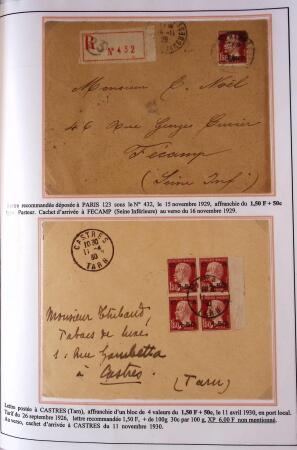 R
N° 432
Monsieur E. Noël
46 Rue Georges Cuvier
Fécamp
(Seine Inf.)
Lettre recommandée déposée à PARIS 123 sous le N° 432, le 15 novembre 1929, affranchie du 1,50 F + 50c
type Pasteur. Cachet d'arrivée à FECAMP (Seine Inférieure) au verso du 16 novembre 1929.
CASTRES
TARN
Monsieur Thibaud,
Tabacs de luxe,
1. Rue Gambetta
à Castres
(Tarn)
Lettre postée à CASTRES (Tarn), affranchie d'un bloc de 4 valeurs du 1,50 F + 50c, le 11 avril 1930, en port local.
Tarif du 26 septembre 1926, lettre recommandée 1,50 F, + de 100g 30c par 100 g, XP 6,00 F non mentionné.
Au verso, cachet d'arrivée à CASTRES du 11 novembre 1930.